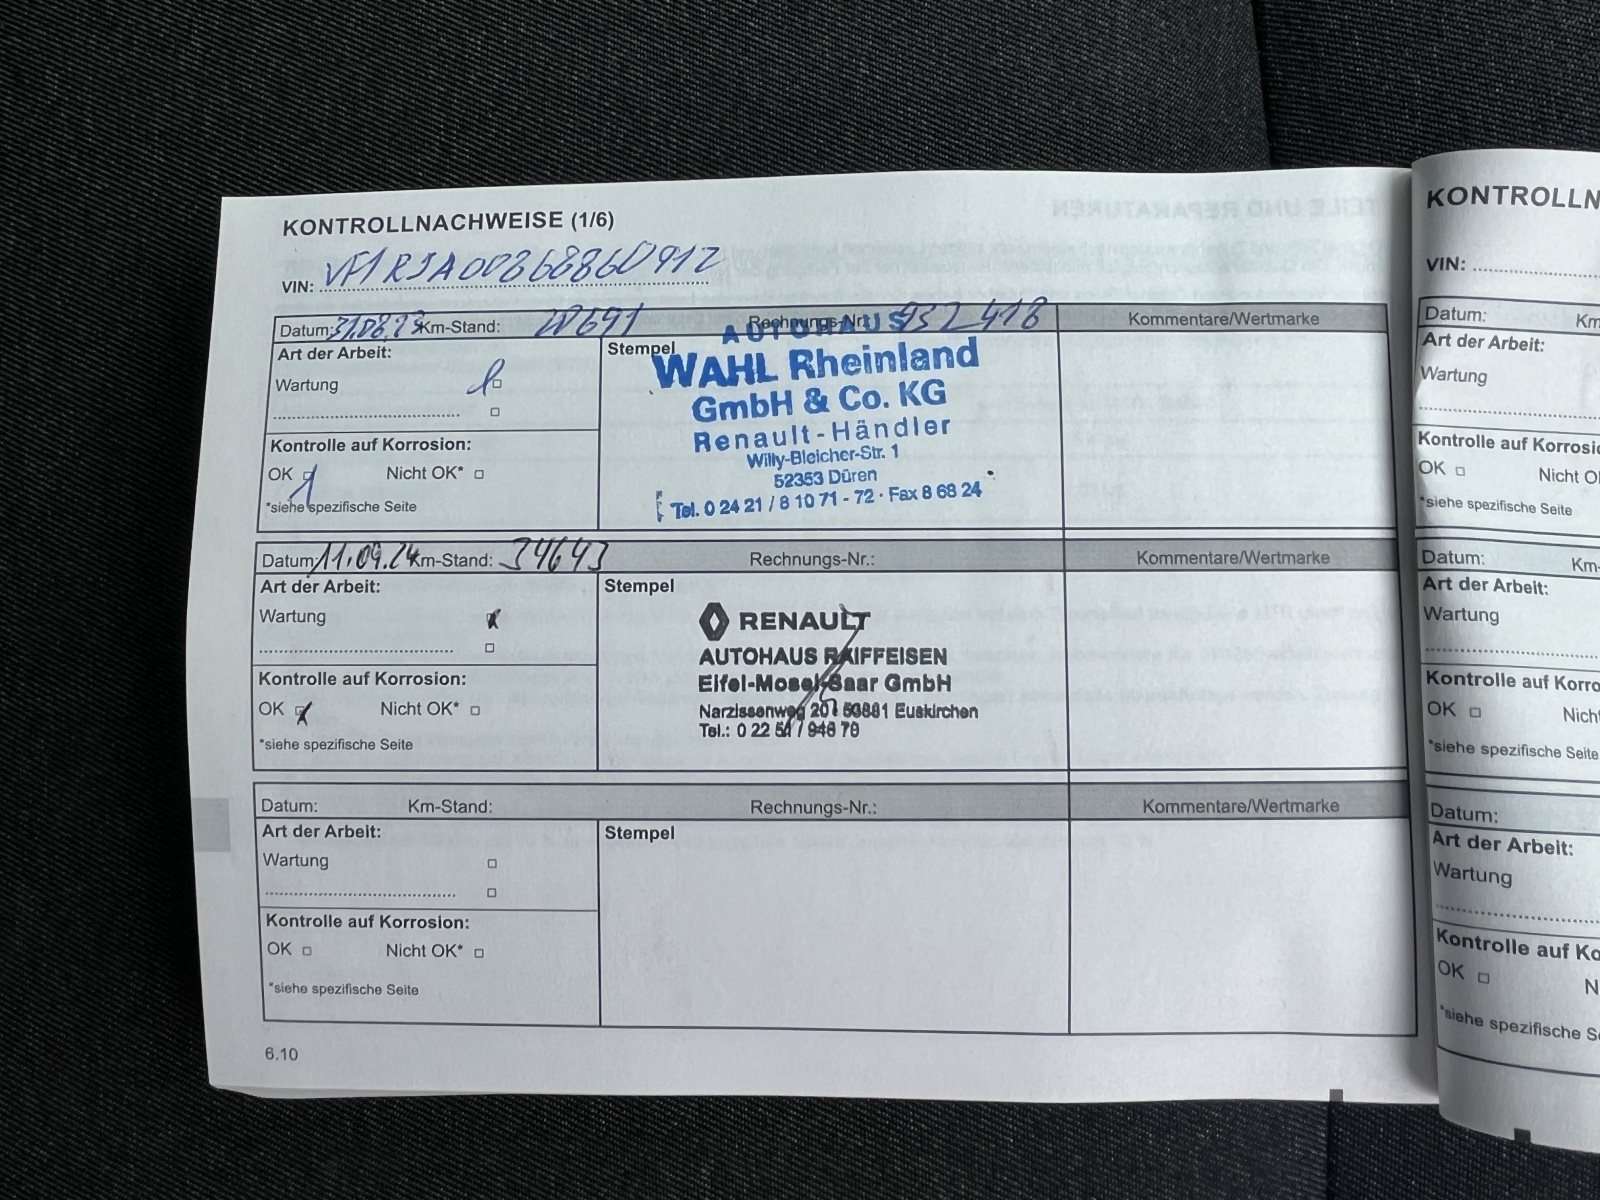 KONTROLLNACHWEISE (1/6)
VIN: VF1RJA00868860912
Datum: 31.08.23 Km-Stand: 20691 Rechnungs-Nr.: 932418 Kommentare/Wertmarke
Art der Arbeit:
Wartung
Kontrolle auf Korrosion:
OK Nicht OK*
*siehe spezifische Seite
Stempel
AUTOHAUS
WAHL Rheinland
GmbH & Co. KG
Renault-Händler
Willy-Bleicher-Str. 1
52353 Düren
Tel. 0 24 21 / 8 10 71 - 72 · Fax 8 68 24
Datum: 11.09.24 Km-Stand: 34643 Rechnungs-Nr.: Kommentare/Wertmarke
Art der Arbeit:
Wartung
Kontrolle auf Korrosion:
OK Nicht OK*
*siehe spezifische Seite
Stempel
RENAULT
AUTOHAUS RAIFFEISEN
Eifel-Mosel-Saar GmbH
Narzissenweg 20 53881 Euskirchen
Tel.: 0 22 51 / 948 70
Datum: Km-Stand: Rechnungs-Nr.: Kommentare/Wertmarke
Art der Arbeit:
Wartung
Kontrolle auf Korrosion:
OK Nicht OK*
*siehe spezifische Seite
Stempel
6.10
KONTROLLN
VIN:
Datum: Km
Art der Arbeit:
Wartung
Kontrolle auf Korrosi
OK Nicht O
*siehe spezifische Seite
Datum: Km-
Art der Arbeit:
Wartung
Kontrolle auf Korro
OK Nich
*siehe spezifische Seite
Datum:
Art der Arbeit:
Wartung
Kontrolle auf Ko
OK N
*siehe spezifische S